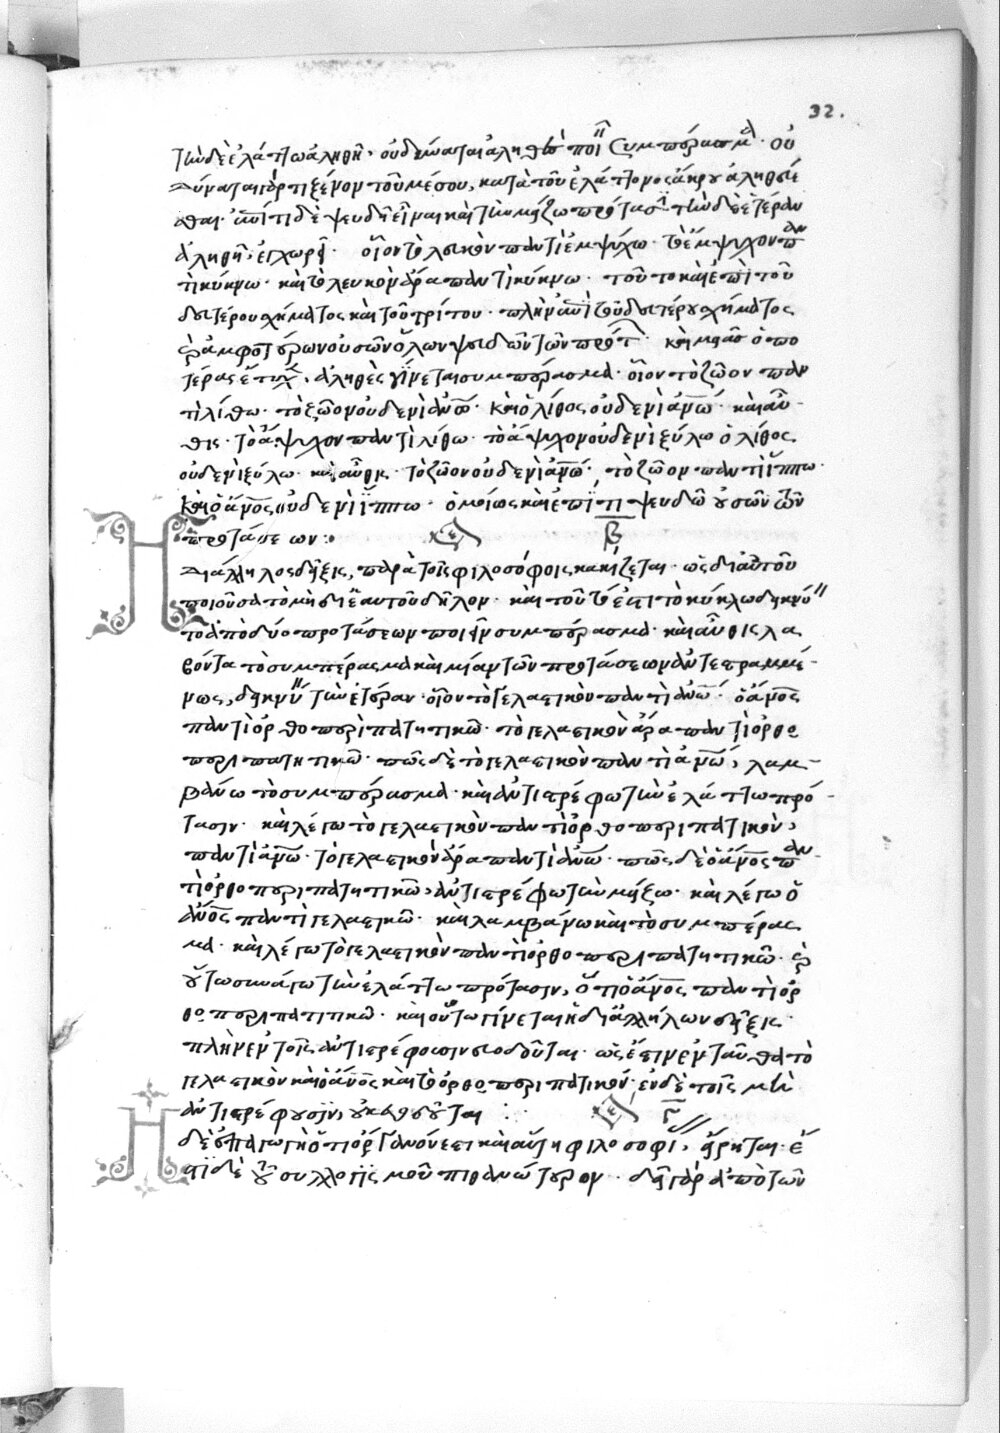 32.
τὴν δὲ ἐλάττω ἀληθῆ, οὐ δύναται ἀληθὲς ποι συμπέρασμα· οὐ
δύναται γάρ τι ξένον τοῦ μέσου, κατὰ τοῦ ἐλάττονος ἄκρου ἀληθεύε
θαι· ἀντὶ δὲ ψευδῆ εἶναι καὶ τὴν μείζω πρότασιν τὴν δὲ ἑτέραν
ἀληθῆ, ἐγχωρεῖ· οἷον τὸ λευκὸν παντὶ ἐμψύχω· τὸ ἔμψυχον παν
τὶ κύκνω· καὶ τὸ λευκὸν ἄρα παντὶ κύκνω· τοῦτο καὶ ἐπὶ τοῦ
δευτέρου σχήματος καὶ τοῦ τρίτου· πλὴν ἀντὶ τοῦ δευτέρου σχήματος
ἀμφοτέρων οὐσῶν ὅλων ψευδῶν τῶν προτ καὶ μιᾶς ὁπο
τέρας ἔτυχ, ἀληθὲς γίνεται συμπέρασμα· οἷον τὸ ζῶον παν
τὶ λίθω· τὸ ζῶον οὐδενὶ ἀνω· καὶ ὁ λίθος οὐδενὶ ἀνω· καὶ αὖ
θις· τὸ ἄψυχον παντὶ λίθω· τὸ ἄψυχον οὐδενὶ ξύλω ὁ λίθος
οὐδενὶ ξύλω· καὶ αὖθις· τὸ ζῶον οὐδενὶ ἀνω· τὸ ζῶον παντὶ ἵππω·
καὶ ὁ ἄνος οὐδενὶ ἵππω· ὁμοίως καὶ ἐπὶ τι ψευδῶ οὐσῶν τῶν
προτάσεων:
β
Η διάλληλος δεῖξις, παρὰ τοῖς φιλοσόφοις κακίζεται· ὡς δι' αὐτοῦ
ποιοῦσα τὸ μὴ δι' ἑαυτοῦ δῆλον· καὶ τοῦτο ἐστι τὸ κύκλω δεικνύ
τὸ ἀπὸ δύο προτάσεων ποιεῖν συμπέρασμα· καὶ αὖθις λα
βόντα τὸ συμπέρασμα καὶ μίαν τῶν προτάσεων ἀντεστραμμέ
νως, δεικνύ τὴν ἑτέραν· οἷον τὸ γελαστικὸν παντὶ ἀνω· ὁ ἄνος
παντὶ ὀρθοπεριπατητικῶ· τὸ γελαστικὸν ἄρα παντὶ ὀρθο
περιπατητικῶ· πῶς δὲ τὸ γελαστικὸν παντὶ ἀνω, λαμ
βάνω τὸ συμπέρασμα· καὶ ἀντιστρέφω τὴν ἐλάττω πρό
τασιν· καὶ λέγω τὸ γελαστικὸν παντὶ ὀρθοπεριπατικὸν,
παντὶ ἀνω· τὸ γελαστικὸν ἄρα παντὶ ἀνω· πῶς δὲ ὁ ἄνος παν
τὶ ὀρθοπεριπατητικῶ, ἀντιστρέφω τὴν μείζω· καὶ λέγω ὁ
ἄνος παντὶ γελαστικῶ· καὶ λαμβάνω καὶ τὸ συμπέρας
μα· καὶ λέγω τὸ γελαστικὸν παντὶ ὀρθοπεριπατητικῶ·
οὕτω συνάγω τὴν ἐλάττω πρότασιν, ὅτι ὁ ἄνος παντὶ ὀρ
θοπεριπατιτικῶ· καὶ οὕτω γίνεται ἡ δι' ἀλλήλων δεῖξις·
πλὴν ἐν τοῖς ἀντιστρέφουσιν εὐοδοῦται· ὡς ἔστιν ἐνταῦθα τὸ
γελαστικὸν καὶ ὁ ἄνος καὶ τὸ ὀρθοπεριπατικόν· ἐν δὲ τοῖς μὴ
ἀντιστρέφουσιν, οὐκ εὐοδοῦται
γ
Η δὲ ἐπαγωγὴ ὅτι ὄργανόν ἐστι καὶ αὕτη φιλοσοφί, εἴρηται· ἔ
στι δὲ τοῦ συλλογισμοῦ πιθανώτερον· δεῖ γὰρ ἀπὸ τῶν